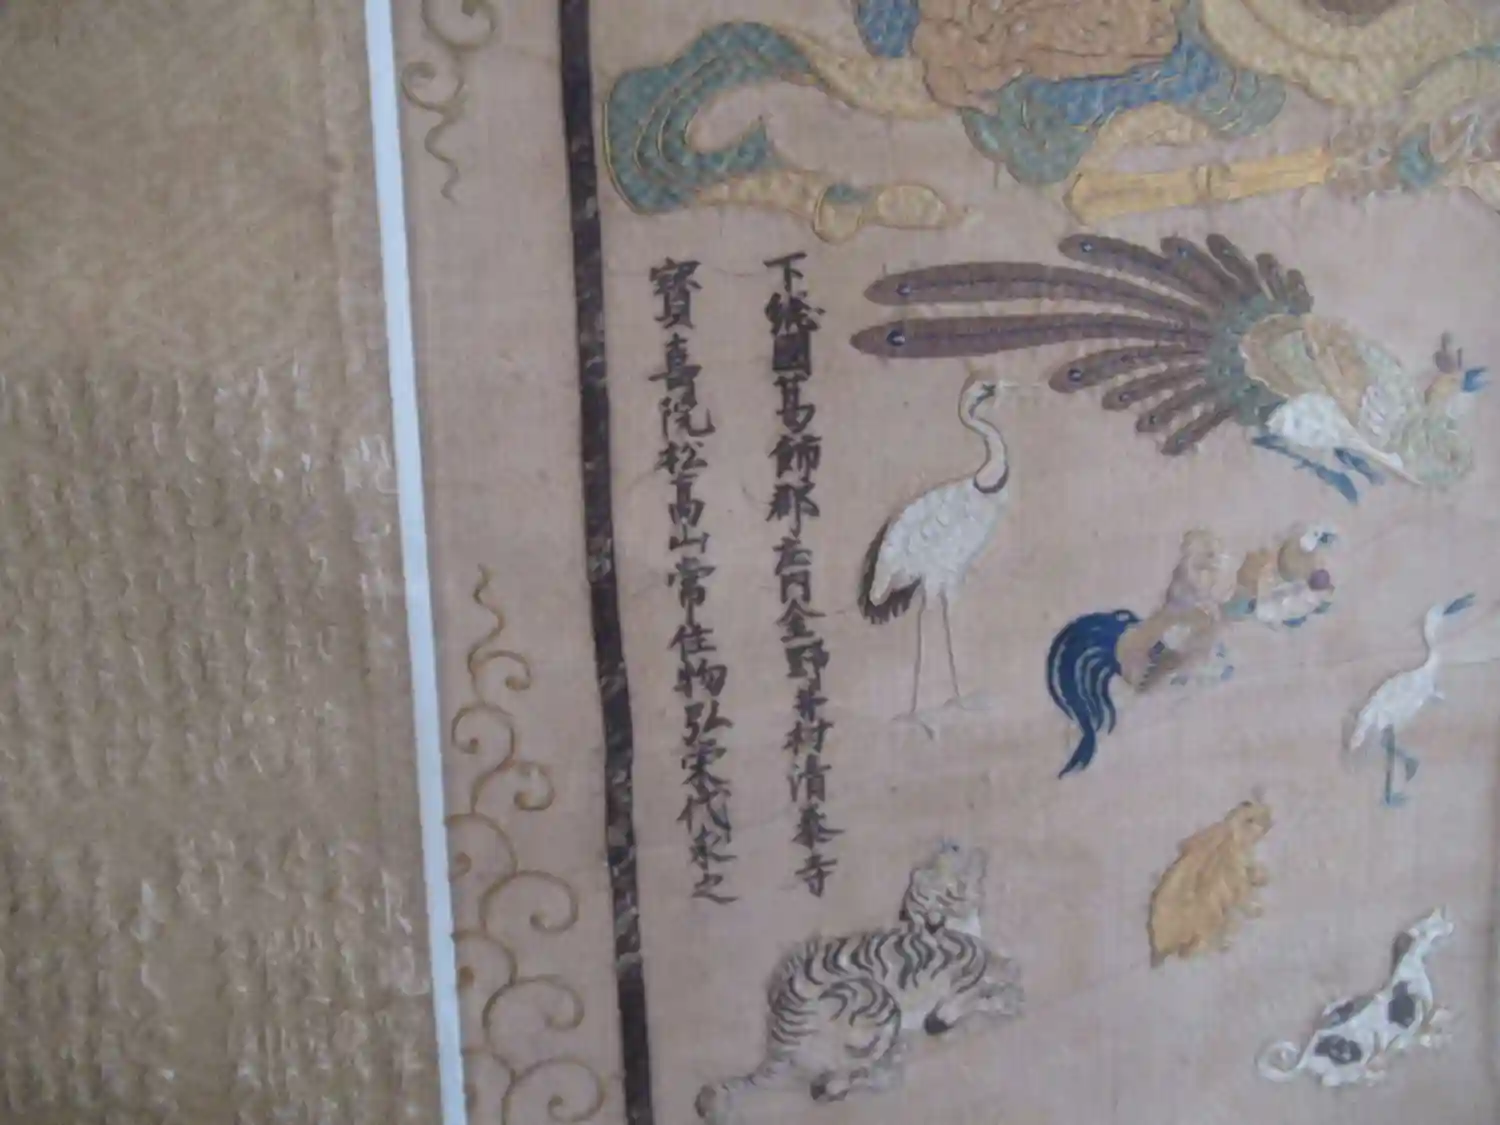 下総國葛飾郡庄内金野井村清泰寺
寳喜院松高山常住物弘栄代求之